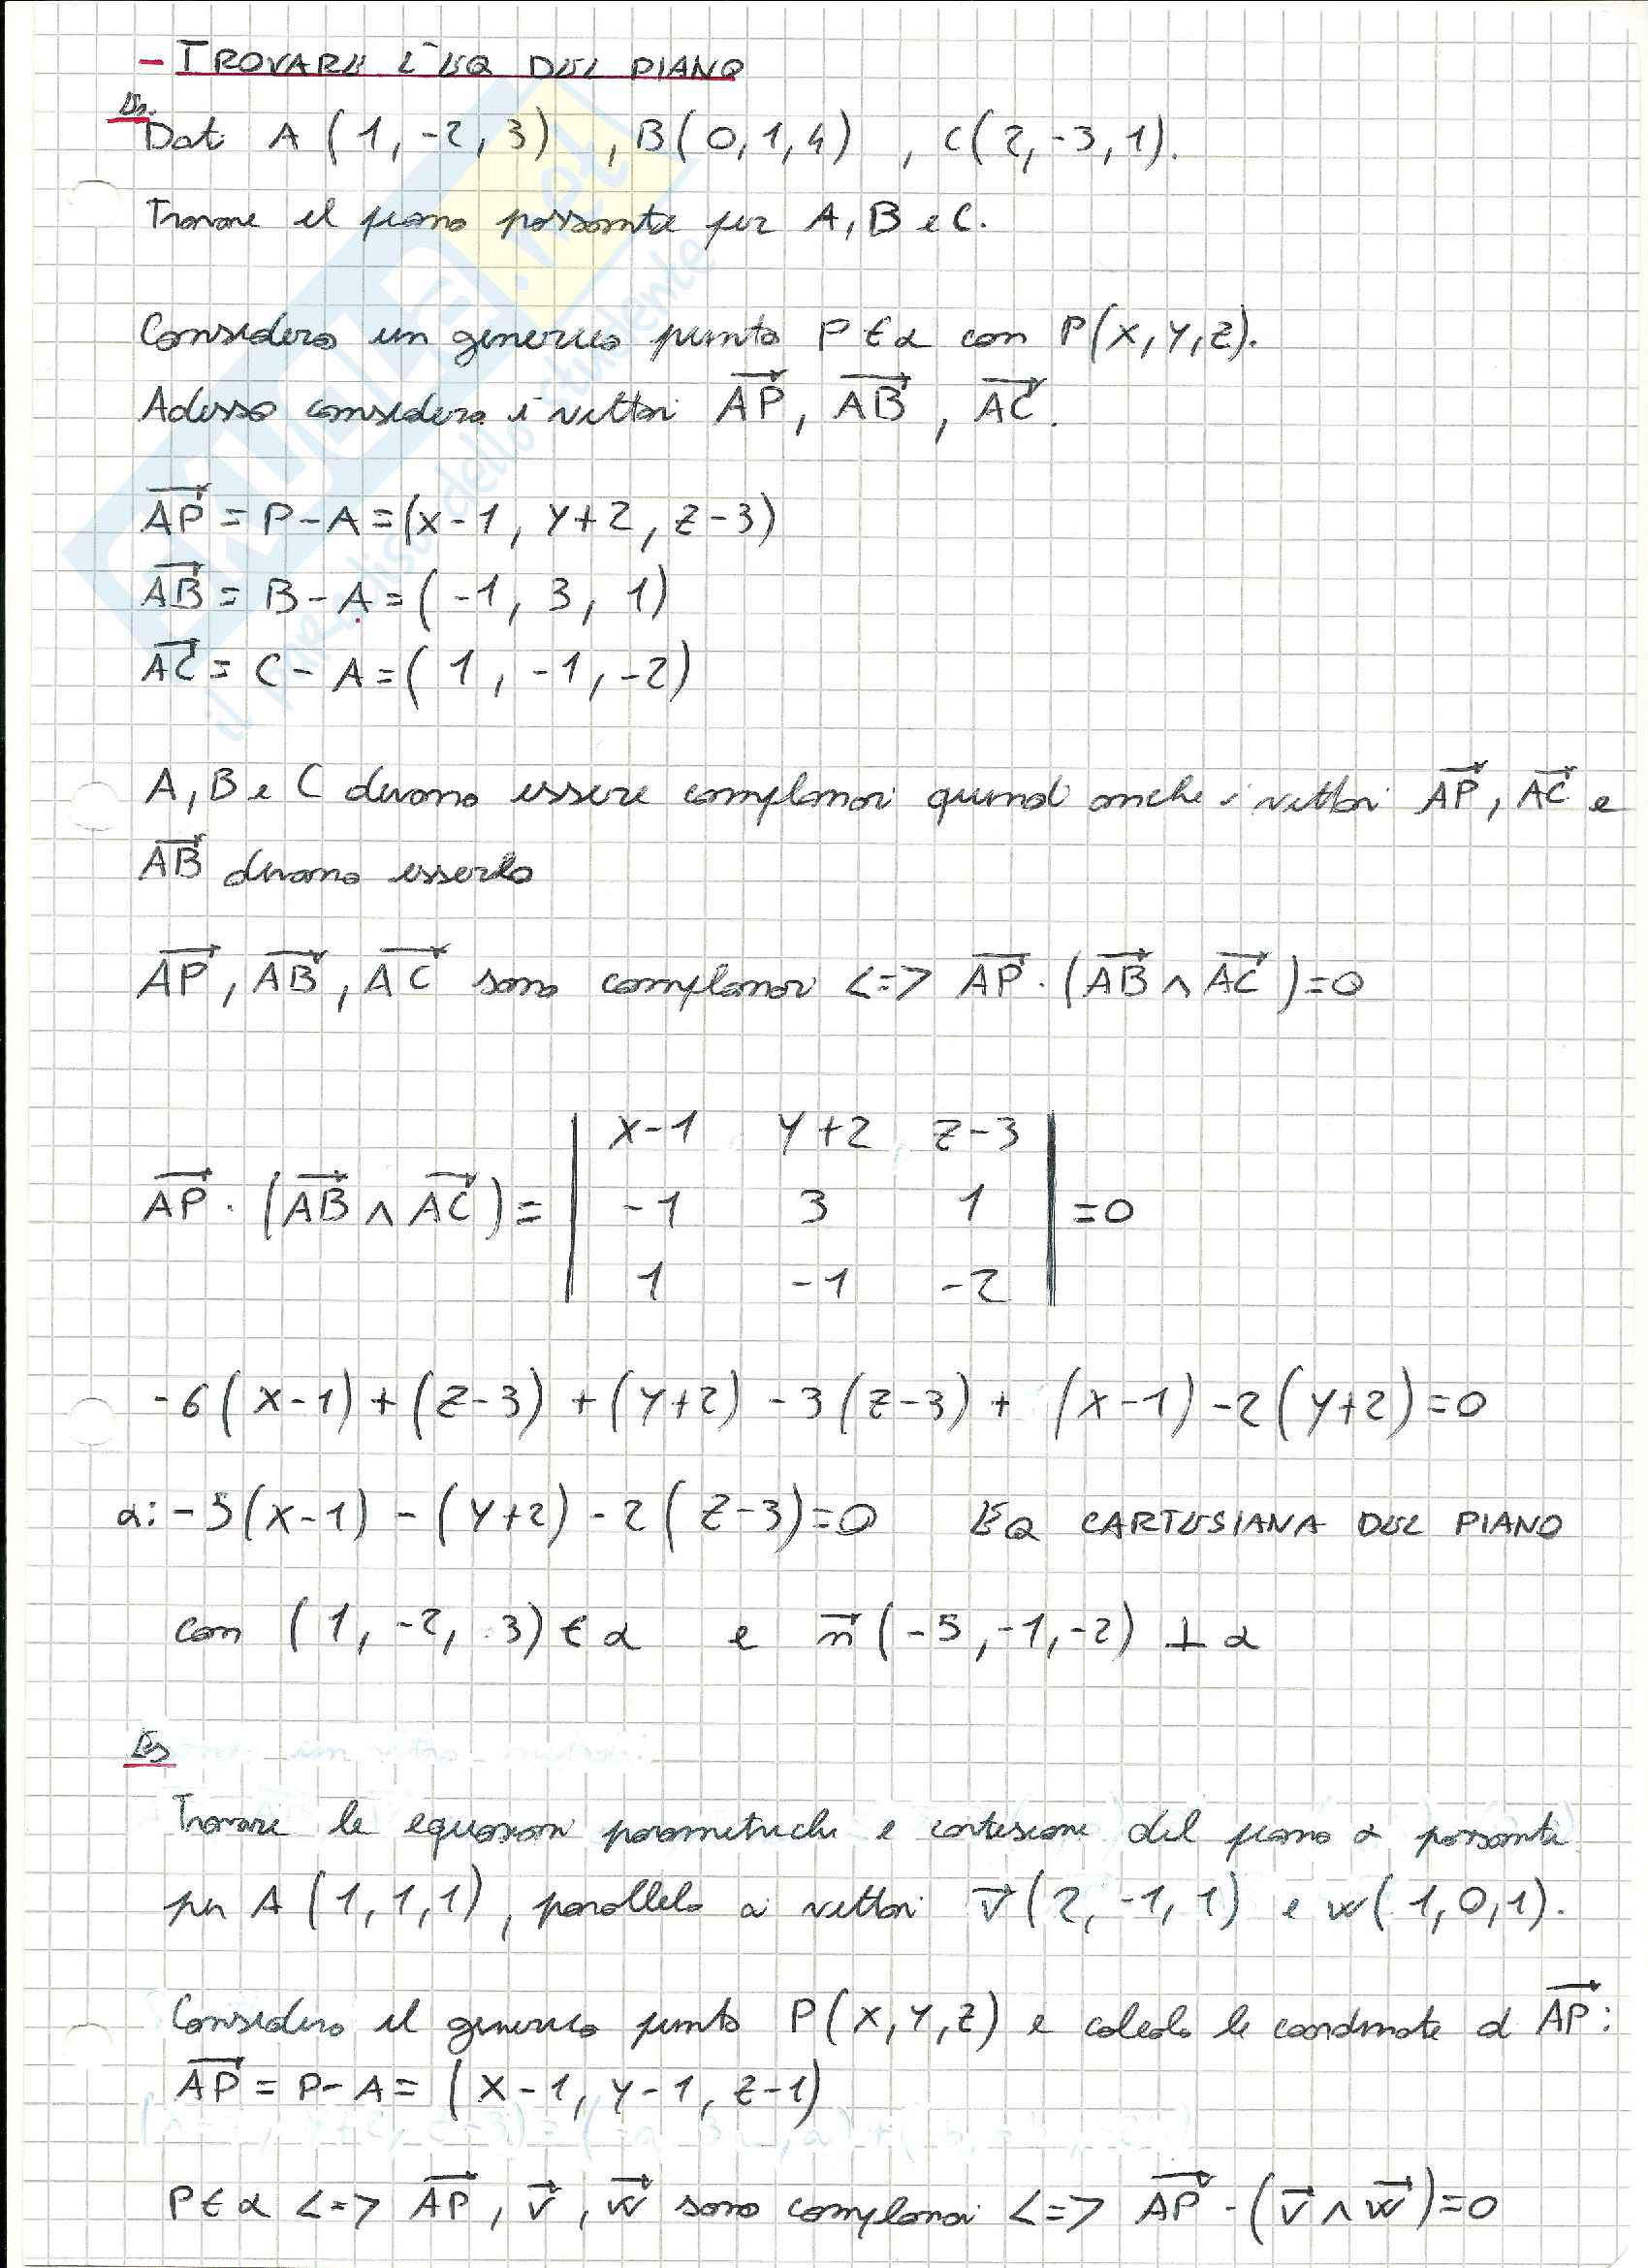 - TROVARE L'EQ DEL PIANO
Es.
Dati A (1, -2, 3) , B(0, 1, 4) , C(2, -3, 1).
Trovare il piano passante per A, B e C.
Considero un generico punto P ∈ α con P(X, Y, Z).
Adesso considero i vettori AP, AB, AC.
AP = P - A = (X-1, Y+2, Z-3)
AB = B - A = (-1, 3, 1)
AC = C - A = (1, -1, -2)
A, B e C devono essere complanari quindi anche i vettori AP, AC e
AB devono esserlo
AP, AB, AC sono complanari <=> AP · (AB ∧ AC) = 0
X-1 Y+2 Z-3
AP · (AB ∧ AC) = | -1 3 1 | = 0
1 -1 -2
-6(X-1) + (Z-3) + (Y+2) - 3(Z-3) + (X-1) - 2(Y+2) = 0
α: -5(X-1) - (Y+2) - 2(Z-3) = 0 EQ CARTESIANA DEL PIANO
con (1, -2, 3) ∈ α e n(-5, -1, -2) ⊥ α
Es
Trovare le equazioni parametriche e cartesiane del piano α passante
per A (1, 1, 1), parallelo ai vettori v(2, -1, 1) e w(1, 0, 1).
Considero il generico punto P(X, Y, Z) e calcolo le coordinate di AP:
AP = P - A = (X-1, Y-1, Z-1)
P ∈ α <=> AP, v, w sono complanari <=> AP · (v ∧ w) = 0